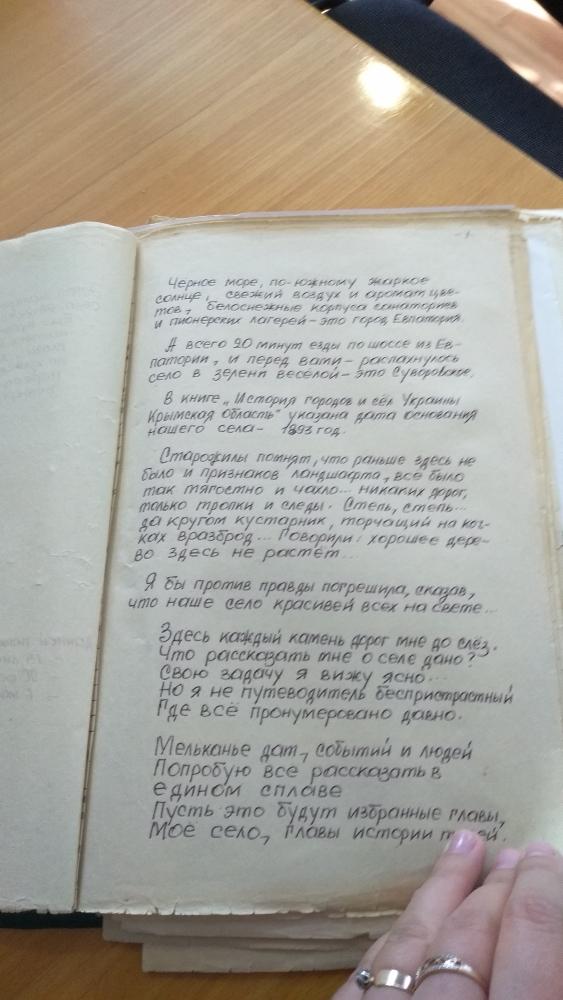 - 1 -
Черное море, по-южному жаркое
солнце, свежий воздух и аромат цве-
тов, белоснежные корпуса санаториев
и пионерских лагерей – это город Евпатория.
А всего 20 минут езды по шоссе из Ев-
патории, и перед вами – распахнулось
село в зелени весёлой – это Суворовское.
В книге „История городов и сёл Украины
Крымская область" указана дата основания
нашего села – 1893 год.
Старожилы помнят, что раньше здесь не
было и признаков ландшафта, всё было
так тягостно и чахло... никаких дорог,
только тропки и следы. Степь, степь...
да кругом кустарник, торчащий на коч-
ках вразброд... Говорили: хорошее дере-
во здесь не растёт...
Я бы против правды погрешила, сказав,
что наше село красивей всех на свете...
Здесь каждый камень дорог мне до слёз.
Что рассказать мне о селе дано?
Свою задачу я вижу ясно...
Но я не путеводитель беспристрастный
Где всё пронумеровано давно.
Мельканье дат, событий и людей
Попробую все рассказать в
едином сплаве
Пусть это будут избранные главы,
Моё село, главы истории